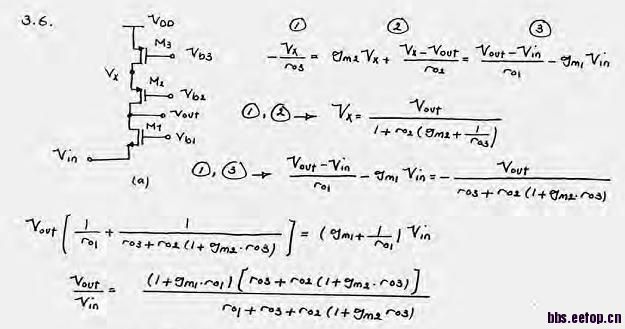 3.6.
VDD
M3
Vb3
Vx
M2
Vb2
Vout
M1
Vb1
Vin
(a)
① ② ③
-Vx/ro3 = gm2 Vx + (Vx-Vout)/ro2 = (Vout-Vin)/ro1 - gm1 Vin
①, ② → Vx = Vout/(1+ro2(gm2+1/ro3))
①, ③ → (Vout-Vin)/ro1 - gm1 Vin = - Vout/(ro3+ro2(1+gm2·ro3))
Vout[1/ro1 + 1/(ro3+ro2(1+gm2·ro3))] = (gm1+1/ro1) Vin
Vout/Vin = (1+gm1·ro1)[ro3+ro2(1+gm2·ro3)]/(ro1+ro3+ro2(1+gm2 ro3))
bbs.eetop.cn